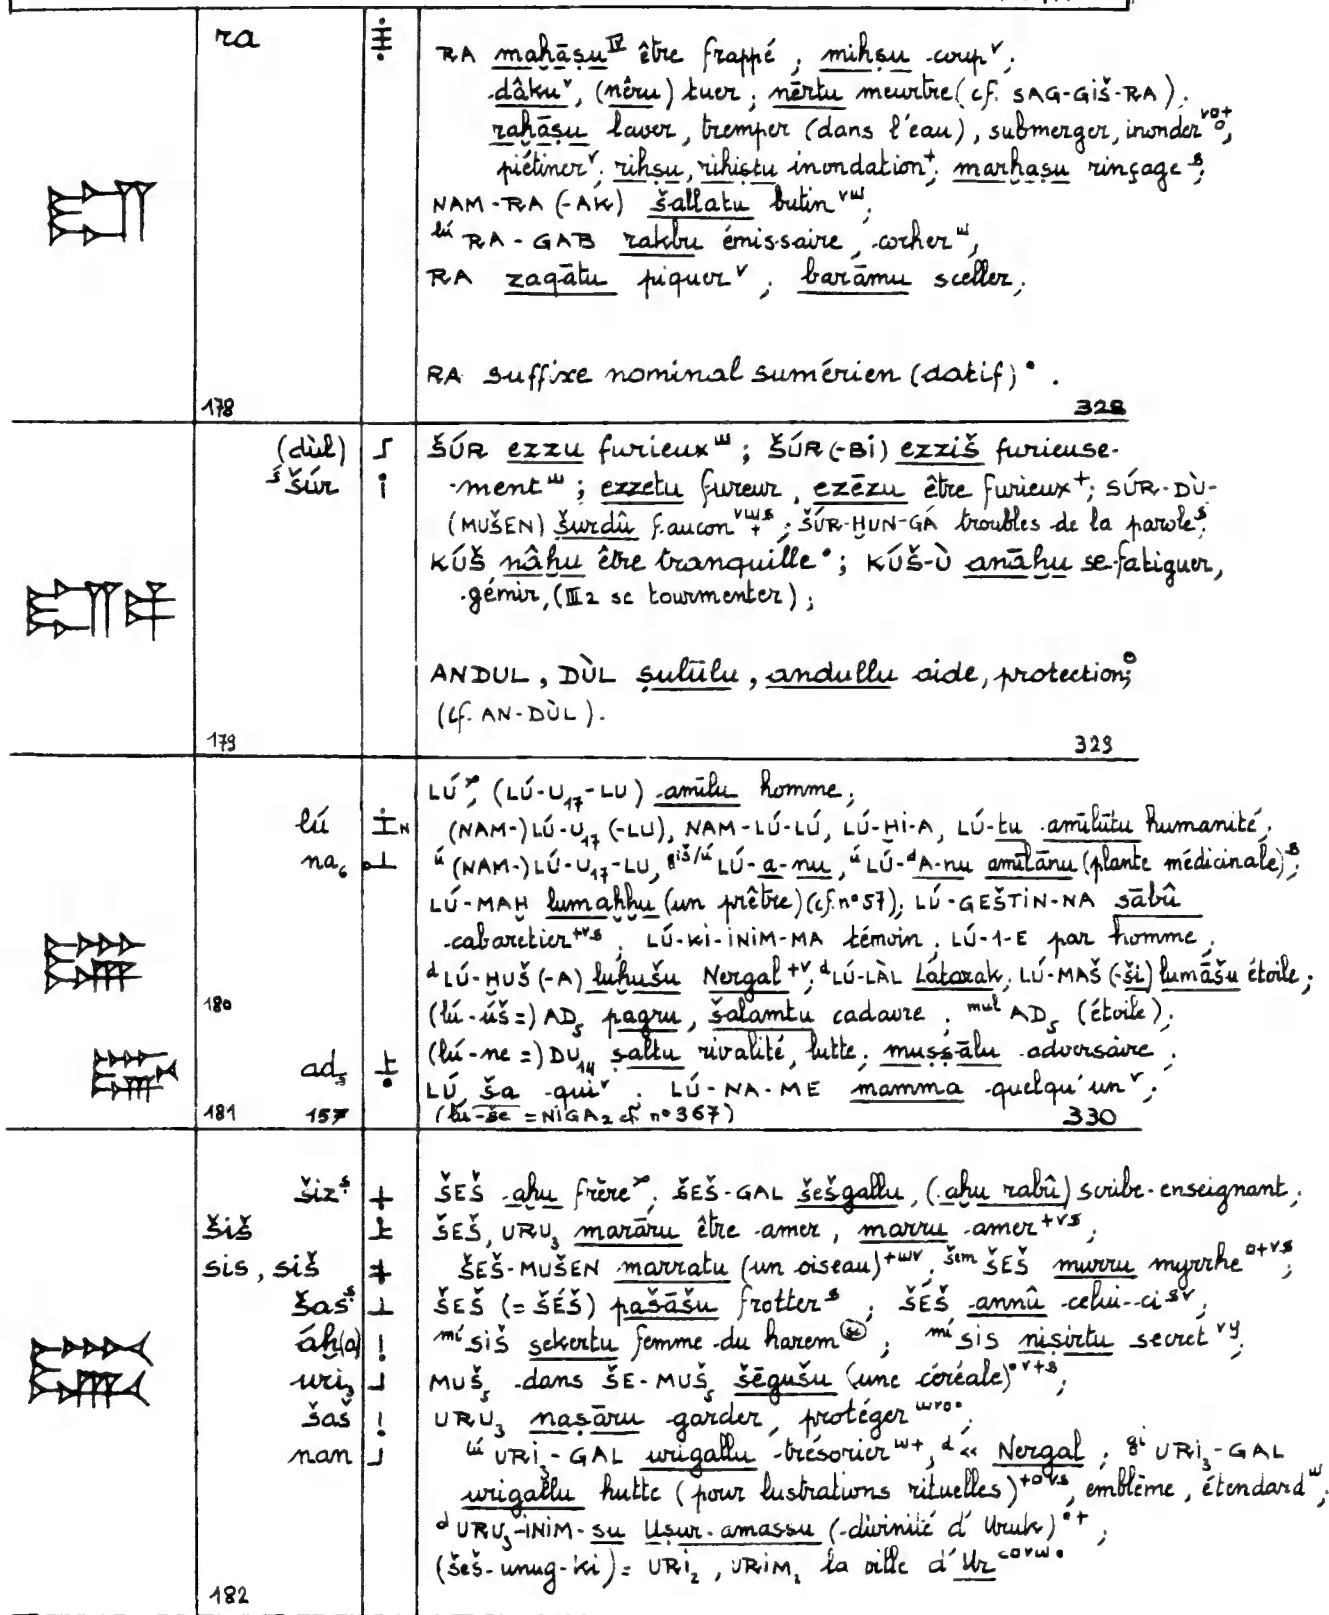 ra
RA maḫāṣuᴵⱽ être frappé ; miḫṣu coupᵛ ;
dâkuᵛ, (nêru) tuer ; nērtu meurtre (cf. SAG-GIŠ-RA) ;
raḫāṣu laver, tremper (dans l'eau), submerger, inonder ;
piétinerᵛ ; riḫṣu, riḫiṣtu inondation⁺ ; marḫaṣu rinçageˢ ;
NAM-RA (-AK) šallatu butinᵛʷ ;
ˡᵘ́ RA-GAB rakbu émissaire, cocherʷ ;
RA zaqātu piquerᵛ ; barāmu sceller ;
RA suffixe nominal sumérien (datif)° .
178 328
(dùl) ŠÚR ezzu furieuxʷ ; ŠÚR (-BI) ezziš furieuse-
ˢšúr mentʷ ; ezzetu fureur, ezēzu être furieux⁺ ; SÚR-DÙ-
(MUŠEN) šurdû faucon ; ŠÚR-ḪUN-GÁ troubles de la paroleˢ ;
KÚŠ nâḫu être tranquille° ; KÚŠ-Ù anāḫu se fatiguer,
gémir, (III2 se tourmenter) ;
ANDUL, DÙL ṣulūlu, andullu aide, protection ;
(cf. AN-DÙL).
179 329
LÚ, (LÚ-U₁₇-LU) amīlu homme ;
lú (NAM-)LÚ-U₁₇(-LU), NAM-LÚ-LÚ, LÚ-ḪI-A, LÚ-tu amīlūtu humanité ;
na₆ ᵘ́ (NAM-)LÚ-U₁₇-LU, ᵍⁱˢ̌/ᵘ́ LÚ-a-nu, ᵘ́ LÚ-ᵈA-nu amīlānu (plante médicinale)ˢ ;
LÚ-MAḪ lumaḫḫu (un prêtre) (cf. n° 57) ; LÚ-GEŠTIN-NA sābû
cabaretier⁺ᵛˢ ; LÚ-KI-INIM-MA témoin ; LÚ-1-E par homme ;
ᵈLÚ-ḪUŠ (-A) luḫušu Nergal⁺ᵛ ; ᵈLÚ-LÀL Látarak ; LÚ-MAŠ (-ši) lumāšu étoile ;
180 (lú-úš =) AD₅ pagru, šalamtu cadavre ; ᵐᵘˡ AD₅ (étoile) ;
(lú-ne =) DU₁₄ ṣaltu rivalité, lutte ; muṣṣālu adversaire ;
ad₅ LÚ ša quiᵛ ; LÚ-NA-ME mamma quelqu'unᵛ ;
181 157 (lú-še = NIGA₂ cf. n° 367) 330
šizˢ ŠEŠ aḫu frère ; ŠEŠ-GAL šešgallu, (aḫu rabû) scribe-enseignant ;
šiš ŠEŠ, URU₃ marāru être amer, marru amer⁺ᵛˢ ;
sis, siš ŠEŠ-MUŠEN marratu (un oiseau)⁺ʷᵛ ; ˢᵉᵐ ŠEŠ murru myrrhe°⁺ᵛˢ ;
šasˢ ŠEŠ (= ŠÉŠ) pašāšu frotterˢ ; ŠEŠ annû celui-ciˢᵛ ;
áḫ(a) ᵐⁱ́ SIŠ sekertu femme du harem ; ᵐⁱ́ SIS niṣirtu secretᵛʸ ;
uri₃ MUŠ₅ dans ŠE-MUŠ₅ šēgušu (une céréale)°ᵛ⁺ˢ ;
šaš URU₃ naṣāru garder, protéger ;
nan ˡᵘ́ URI₃-GAL urigallu trésorierʷ⁺, ᵈ « Nergal ; ᵍⁱ URI₃-GAL
urigallu hutte (pour lustrations rituelles)⁺°ᵛˢ, emblème, étendardʷ ;
ᵈURU₃-INIM-su Uṣur-amassu (divinité d'Uruk)°⁺ ;
(šeš-unug-ki) = URI₂, URIM₂ la ville d'Ur
182